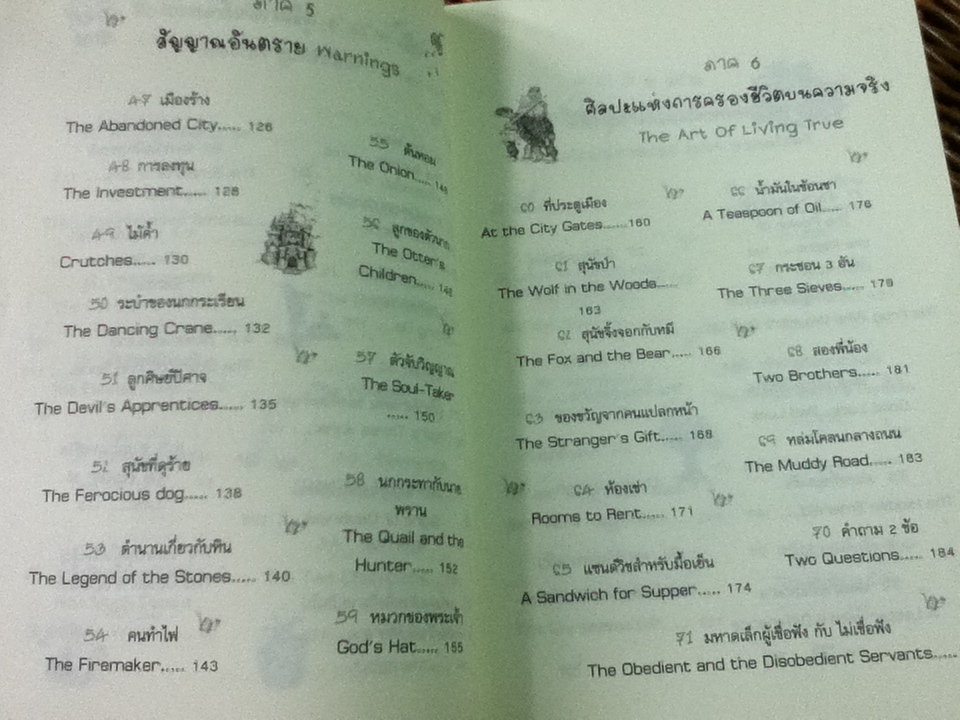 ภาค 5
สัญญาณอันตราย Warnings
47 เมืองร้าง
The Abandoned City..... 126
48 การลงทุน
The Investment..... 128
49 ไม้ค้ำ
Crutches..... 130
50 ระบำของนกกระเรียน
The Dancing Crane..... 132
51 ลูกศิษย์ปีศาจ
The Devil's Apprentices..... 135
52 สุนัขที่ดุร้าย
The Ferocious dog..... 138
53 ตำนานเกี่ยวกับหิน
The Legend of the Stones..... 140
54 คนทำไฟ
The Firemaker..... 143
55 ต้นหอม
The Onion.....
56 ลูกของตัวนาก
The Otter's
Children.....
57 ตัวจับวิญญาณ
The Soul-Taker
..... 150
58 นกกระทากับนาย
พราน
The Quail and the
Hunter..... 152
59 หมวกของพระเจ้า
God's Hat..... 155
ภาค 6
ศิลปะแห่งการครองชีวิตบนความจริง
The Art Of Living True
60 ที่ประตูเมือง
At the City Gates...... 160
61 สุนัขป่า
The Wolf in the Woods.....
163
62 สุนัขจิ้งจอกกับหมี
The Fox and the Bear..... 166
63 ของขวัญจากคนแปลกหน้า
The Stranger's Gift..... 168
64 ห้องเช่า
Rooms to Rent..... 171
65 แซนด์วิชสำหรับมื้อเย็น
A Sandwich for Supper..... 174
66 น้ำมันในช้อนชา
A Teaspoon of Oil..... 176
67 กระชอน 3 อัน
The Three Sieves..... 179
68 สองพี่น้อง
Two Brothers..... 181
69 หล่มโคลนกลางถนน
The Muddy Road..... 183
70 คำถาม 2 ข้อ
Two Questions..... 184
71 มหาดเล็กผู้เชื่อฟัง กับ ไม่เชื่อฟัง
The Obedient and the Disobedient Servants.....